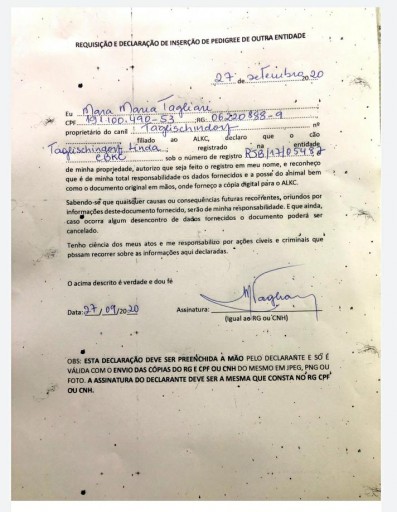 REQUISIÇÃO E DECLARAÇÃO DE INSERÇÃO DE PEDIGREE DE OUTRA ENTIDADE
27 de setembro 2020
Eu Mara Maria Tagliari
CPF 191.100.490-53 RG: 06220898-9
proprietário do canil Taglischindorf nº
filiado ao ALKC, declaro que o cão
Taglischingorf Linda registrado na entidade
CBKC sob o número de registro RSB/17/05487
de minha propriedade, autorizo que seja feito o registro em meu nome, e reconheço
que é de minha total responsabilidade os dados fornecidos e a posse do animal bem
como o documento original em mãos, onde forneço a cópia digital para o ALKC.
Sabendo-se que quaisquer causas ou consequências futuras recorrentes, oriundos por
informações deste documento fornecido, serão de minha responsabilidade. E que ainda,
caso ocorra algum desencontro de dados fornecidos o documento poderá ser
cancelado.
Tenho ciência dos meus atos e me responsabilizo por ações cíveis e criminais que
possam recorrer sobre as informações aqui declaradas.
O acima descrito é verdade e dou fé
Data: 27/09/2020 Assinatura: MTagliari
(Igual ao RG ou CNH)
OBS: ESTA DECLARAÇÃO DEVE SER PREENCHIDA À MÃO PELO DECLARANTE E SÓ É
VÁLIDA COM O ENVIO DAS CÓPIAS DO RG E CPF OU CNH DO MESMO EM JPEG, PNG OU
FOTO. A ASSINATURA DO DECLARANTE DEVE SER A MESMA QUE CONSTA NO RG CPF
OU CNH.